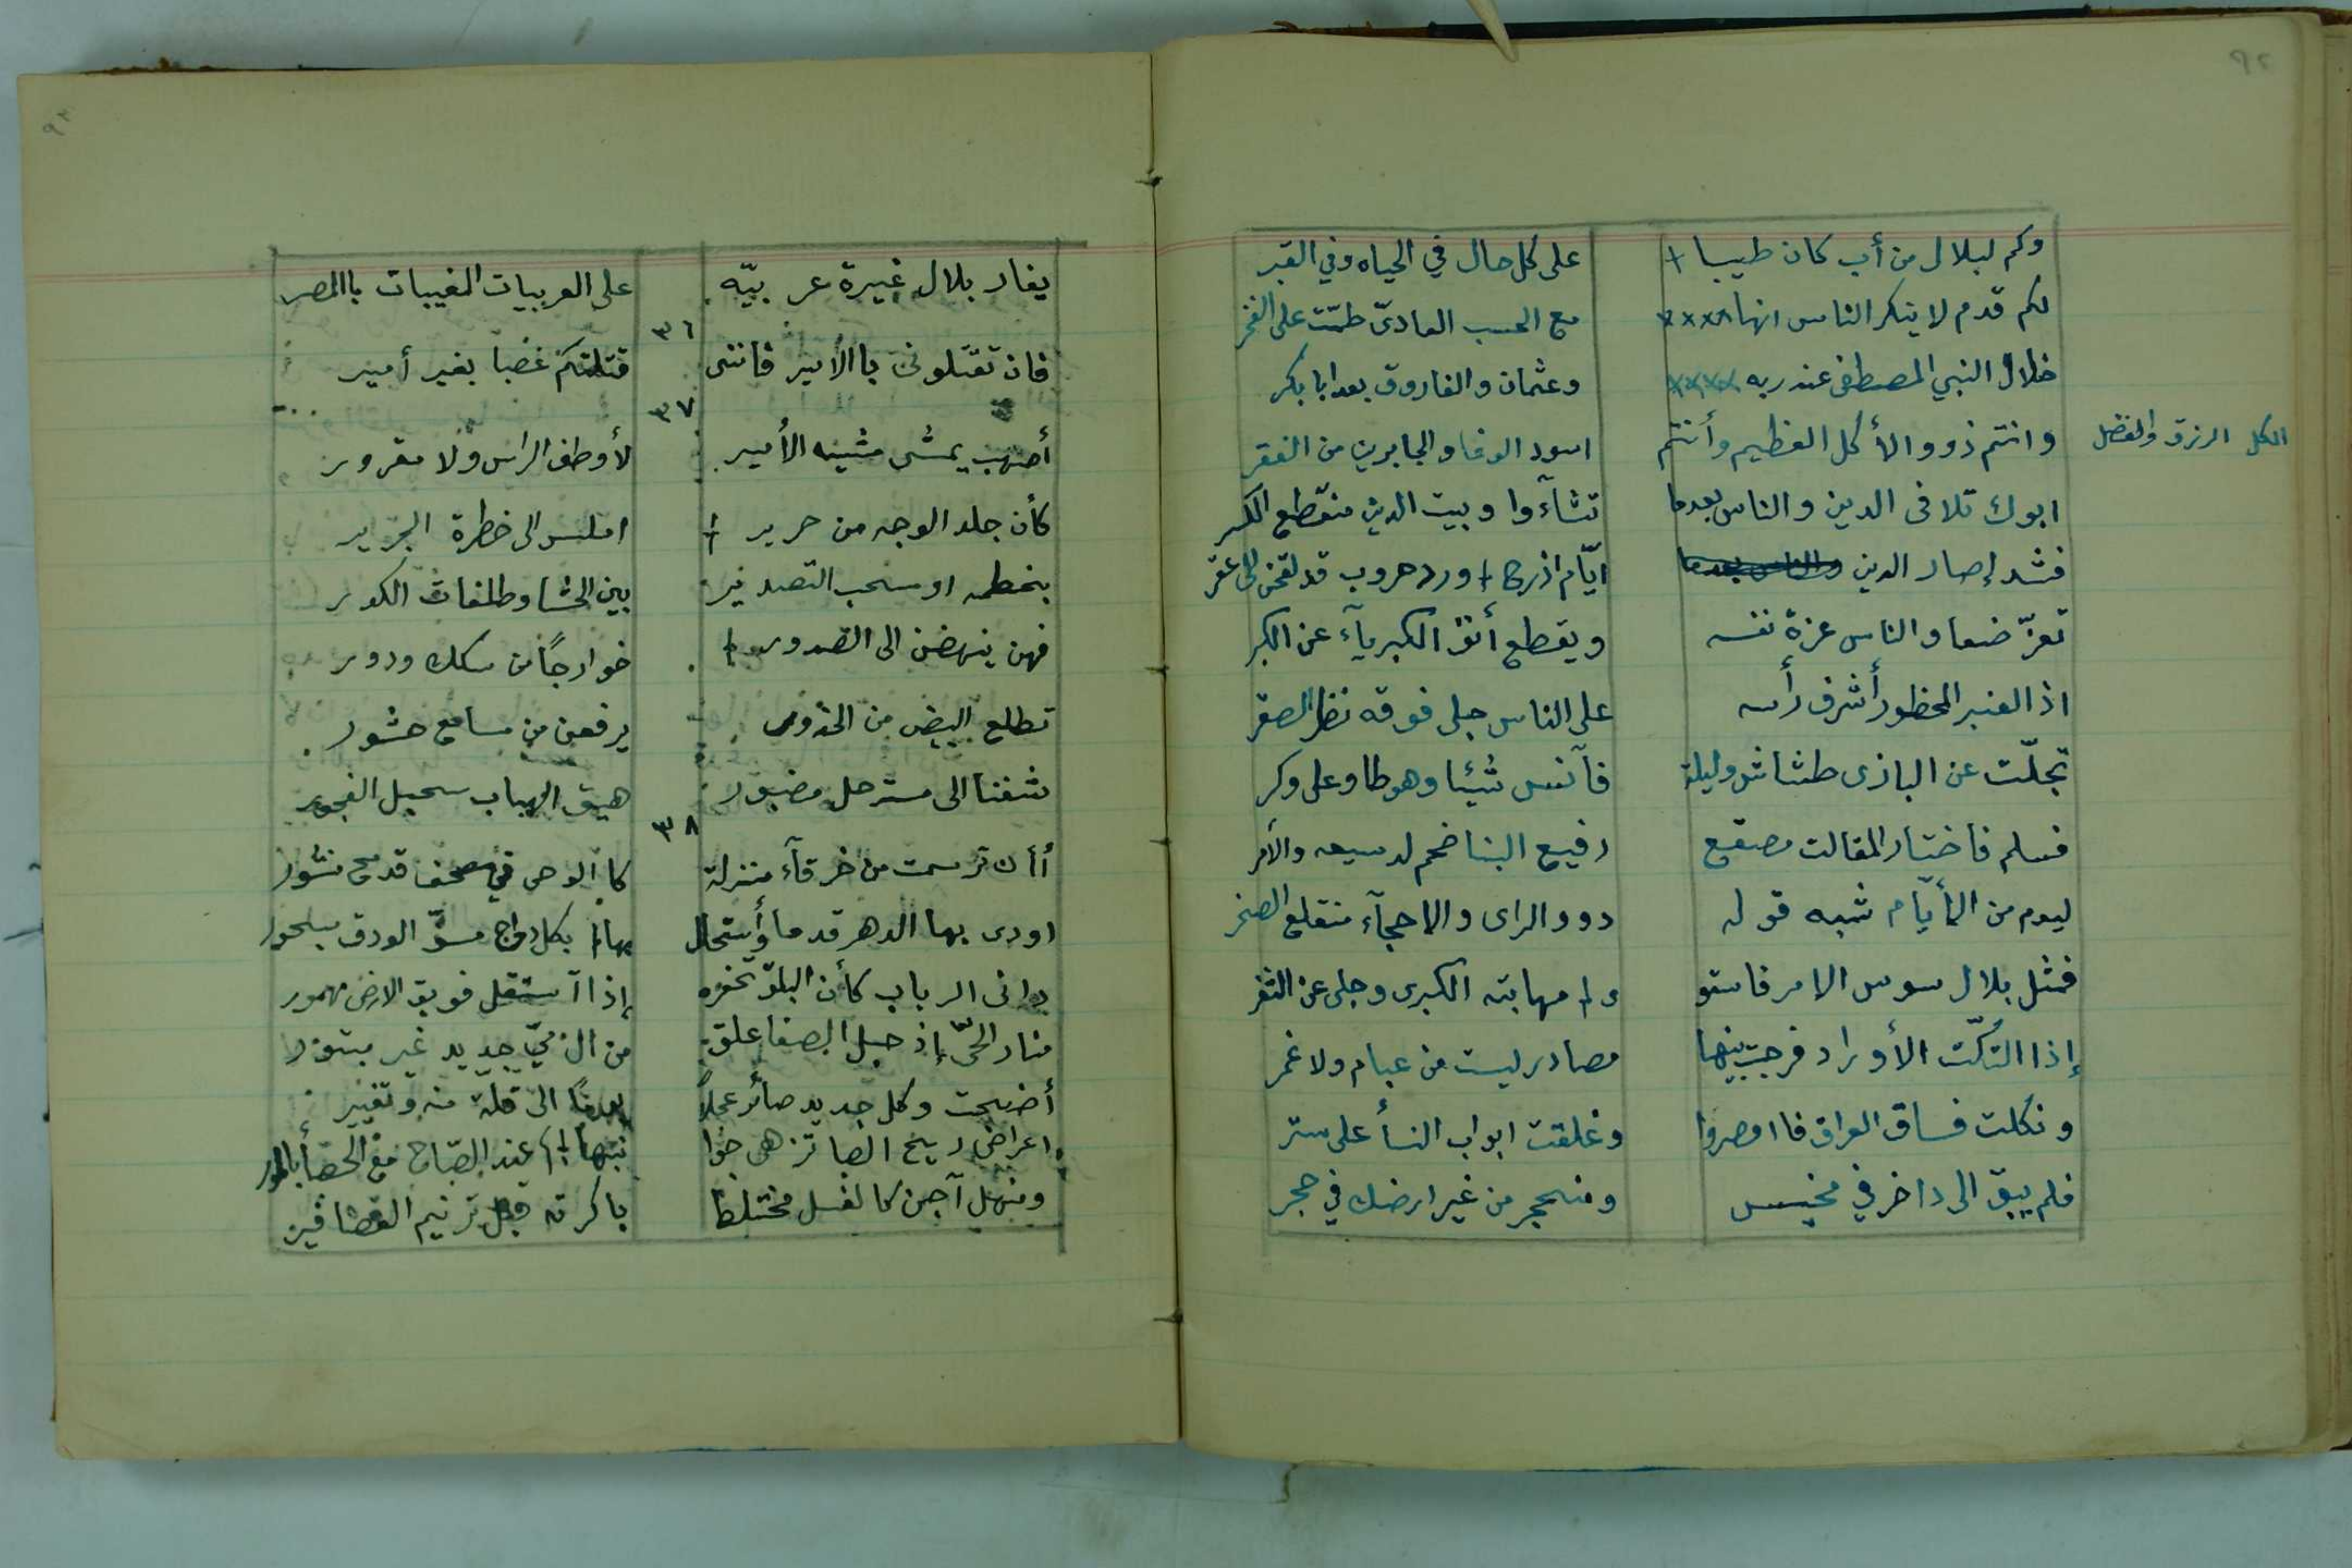 ٩٢
وكم لبلال من أب كان طيبا + على كل حال في الحياه وفي القبر
لكم قدم لا ينكر الناس انها xxxx مع الحسب العاديّ طمّت على الفخر
خلال النبي المصطفى عند ربه xxxx وعثمان والفاروق بعد ابا بكر
وانتم ذوو الأكل العظيم وأنتم اسود الوغا والجابرين من الفقر
الكل الرزق والفضل
ابوك تلافى الدين والناس بعدما تشآءوا وبيت الدين منقطع الكسر
فشد إصار الدين ايّام اذرح + ورد حروب قد لقحن الى عقر
تعزّ ضعا والناس عزة نفسه ويقطع أنف الكبريآء عن الكبر
اذ المنبر المحظور أشرف رأسه على الناس جلى فوقه نظر الصقر
تجلّت عن البازى طشاش وليلة فآنس شيئا وهو طاو على وكر
فسلم فاختار المقالت مصقع رفيع البنا ضخم لدسيعه والأمر
ليوم من الأيّام شبه قوله ذوو الراى والاحجآء منقلع الصخر
فمثل بلال سوس الامر فاستو ت مهابته الكبرى وجلى عن الثغر
إذا التكّت الأوراد فرجت بينها مصادر ليست من عبام ولا غمر
ونكلت فساق العراق فااقصروا وغلقت ابواب النسأ على ستر
فلم يبق الى داخر في مخيس ومنحجر من غير ارضك في حجر
٩٣
يغار بلال غيرة عربيّه على العربيات المغيبات باالمصر
٣٦
فان تقتلونى باالامير فاننى قتلتكم غضبا بغير أمير
٣٧
أصهب يمشى مشيه الأمير لأوطف الراس ولا مقرور
كأن جلد الوجه من حرير + املس الى خطرة الجرير
بخطمه او سحب التصدير بين الحشا وظلفات الكور
فهن ينهضن الى الصدور + خوارجًا من سكك ودور
تطلع البيض من الخدور يرفعن من مسامع حشور
شفنا الى مسترحل مضبور هيق الهباب سحبل الفجور
٣٨
أأن ترسمت من خرقآء منزلة كاالوحى في مصحف قد مح منشور
اودى بها الدهر قدما وأستحال بها بكل رواح الودق
دانى الرباب كأن البلق تحفزه إذا آستقل فويق الارض مهمور
منار الحىّ إذ حبل الصفا علق من ال ميّ جديد غير مبتور
أضحت وكل جديد صائر عجلاً يومًا الى قلة منه وتغيير
اعراض ريح الصبا تزهى جوا نبها عند الصّباح مع الحصبأ
ومنهل آجن كالغسل مختلط باكرته قبل ترنيم العصافير